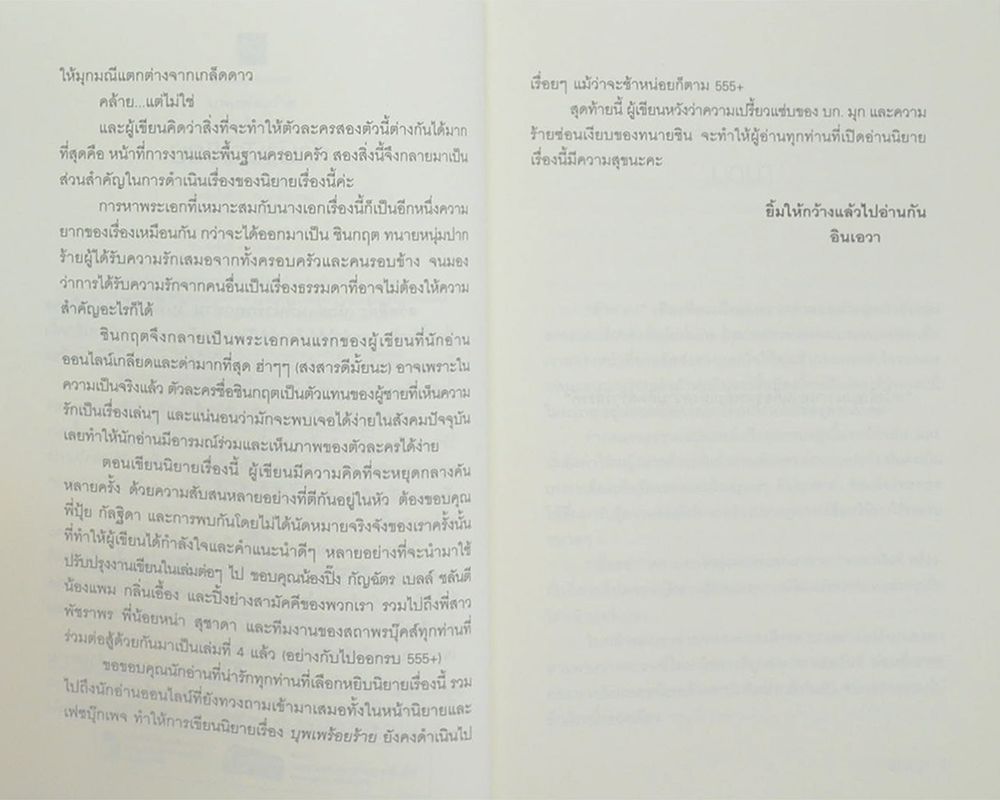 ให้มุกมณีแตกต่างจากเกล็ดดาว
คล้าย...แต่ไม่ใช่
และผู้เขียนคิดว่าสิ่งที่จะทำให้ตัวละครสองตัวนี้ต่างกันได้มาก
ที่สุดคือ หน้าที่การงานและพื้นฐานครอบครัว สองสิ่งนี้จึงกลายมาเป็น
ส่วนสำคัญในการดำเนินเรื่องของนิยายเรื่องนี้ค่ะ
การหาพระเอกที่เหมาะสมกับนางเอกเรื่องนี้ก็เป็นอีกหนึ่งความ
ยากของเรื่องเหมือนกัน กว่าจะได้ออกมาเป็น ชินกฤต ทนายหนุ่มปาก
ร้ายผู้ได้รับความรักเสมอจากทั้งครอบครัวและคนรอบข้าง จนมอง
ว่าการได้รับความรักจากคนอื่นเป็นเรื่องธรรมดาที่อาจไม่ต้องให้ความ
สำคัญอะไรก็ได้
ชินกฤตจึงกลายเป็นพระเอกคนแรกของผู้เขียนที่นักอ่าน
ออนไลน์เกลียดและด่ามากที่สุด ฮ่าๆๆ (สงสารดีมั้ยนะ) อาจเพราะใน
ความเป็นจริงแล้ว ตัวละครชื่อชินกฤตเป็นตัวแทนของผู้ชายที่เห็นความ
รักเป็นเรื่องเล่นๆ และแน่นอนว่ามักจะพบเจอได้ง่ายในสังคมปัจจุบัน
เลยทำให้นักอ่านมีอารมณ์ร่วมและเห็นภาพของตัวละครได้ง่าย
ตอนเขียนนิยายเรื่องนี้ ผู้เขียนมีความคิดที่จะหยุดกลางคัน
หลายครั้ง ด้วยความสับสนหลายอย่างที่ตีกันอยู่ในหัว ต้องขอบคุณ
พี่ปุ้ย กัลฐิดา และการพบกันโดยไม่ได้นัดหมายจริงจังของเราครั้งนั้น
ที่ทำให้ผู้เขียนได้กำลังใจและคำแนะนำดีๆ หลายอย่างที่จะนำมาใช้
ปรับปรุงงานเขียนในเล่มต่อๆ ไป ขอบคุณน้องปิ๊ง กัญฉัตร เบลล์ ชลันตี
น้องแพม กลิ่นเอื้อง และปิ้งย่างสามัคคีของพวกเรา รวมไปถึงพี่สาว
พัชราพร พี่น้อยหน่า สุชาดา และทีมงานของสถาพรบุ๊คส์ทุกท่านที่
ร่วมต่อสู้ด้วยกันมาเป็นเล่มที่ 4 แล้ว (อย่างกับไปออกรบ 555+)
ขอขอบคุณนักอ่านที่น่ารักทุกท่านที่เลือกหยิบนิยายเรื่องนี้ รวม
ไปถึงนักอ่านออนไลน์ที่ยังทวงถามเข้ามาเสมอทั้งในหน้านิยายและ
เฟซบุ๊กเพจ ทำให้การเขียนนิยายเรื่อง บุพเพร้อยร้าย ยังคงดำเนินไป
เรื่อยๆ แม้ว่าจะช้าหน่อยก็ตาม 555+
สุดท้ายนี้ ผู้เขียนหวังว่าความเปรี้ยวแซ่บของ บก. มุก และความ
ร้ายซ่อนเงียบของทนายชิน จะทำให้ผู้อ่านทุกท่านที่เปิดอ่านนิยาย
เรื่องนี้มีความสุขนะคะ
ยิ้มให้กว้างแล้วไปอ่านกัน
อินเอวา